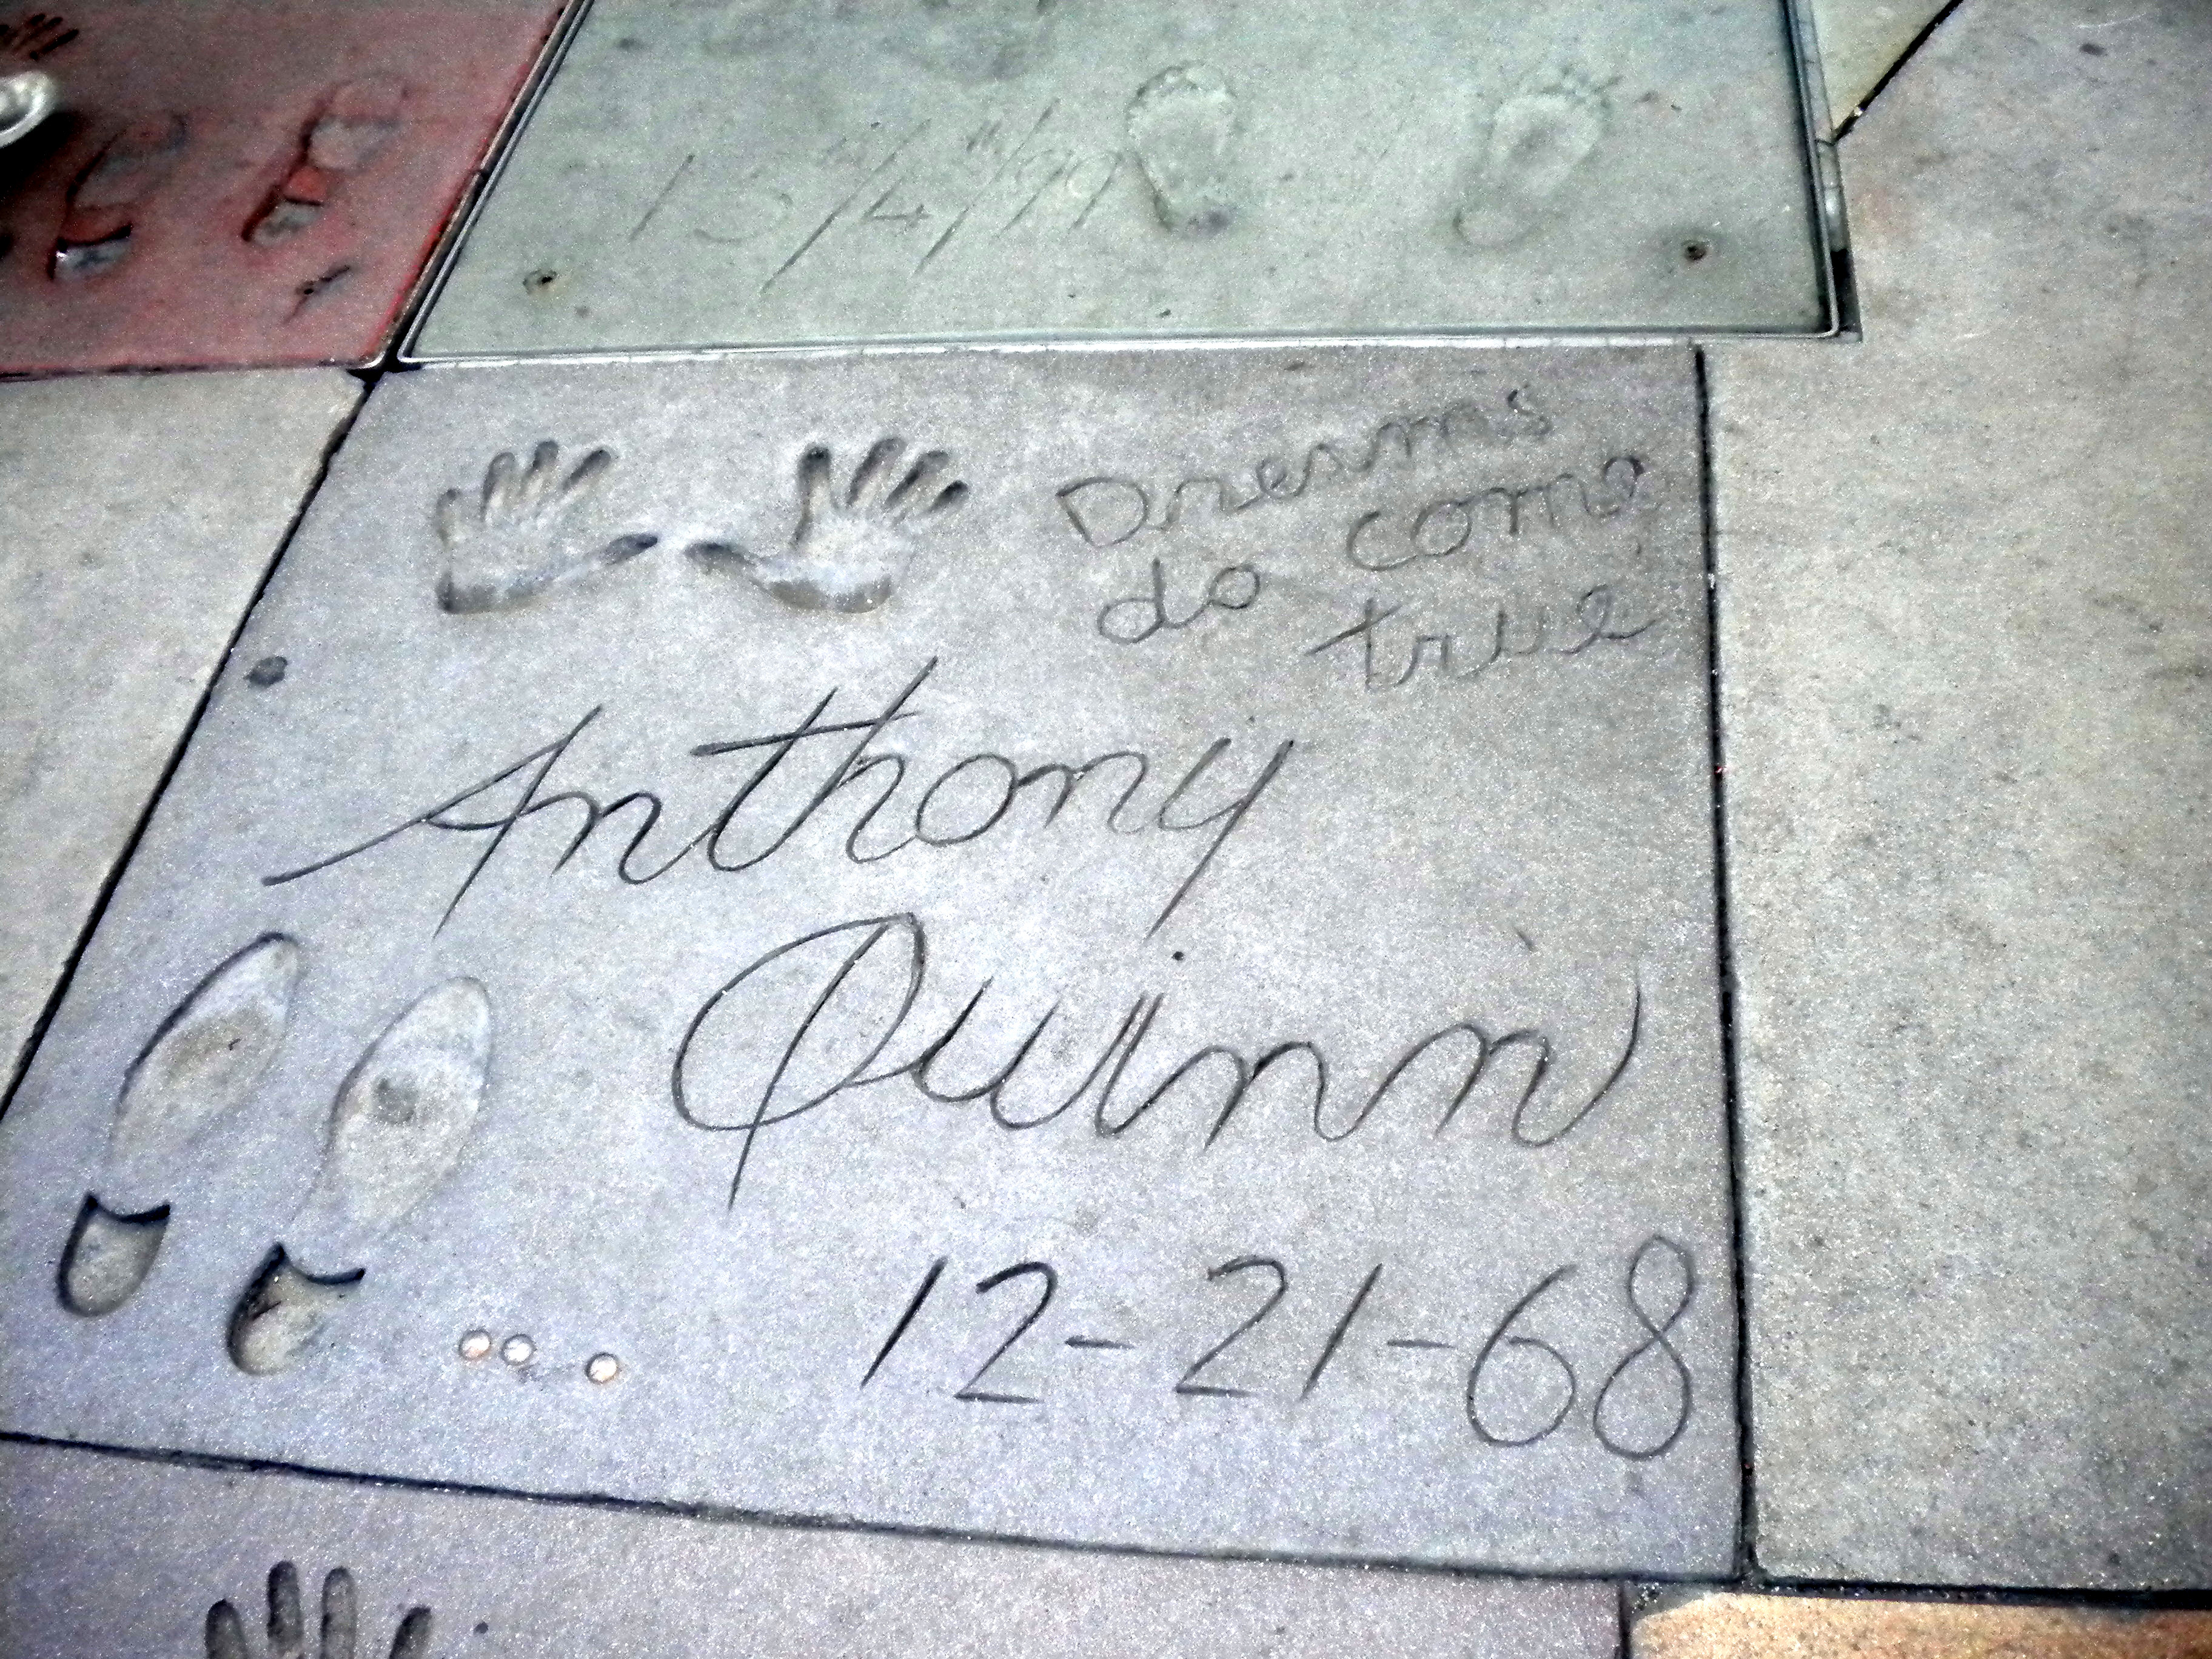 15th/4th/99
Dreams
do come
true
Anthony
Quinn
12-21-68